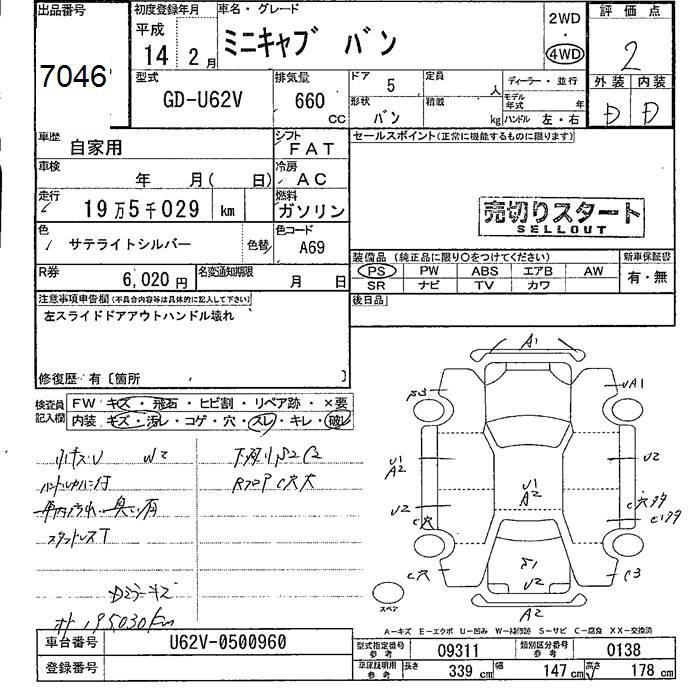 出品番号 初度登録年月 車名・グレード 評価点
7046 平成 14 2月 ミニキャブ バン 2WD・4WD 2
型式 排気量 ドア 定員 ディーラー・並行 外装 内装
GD-U62V 660 CC 5 人 モデル年式 年 D D
形状 バン 積載 kg ハンドル 左・右
車歴 自家用 シフト FAT セールスポイント(正常に機能するものに限ります)
車検 年 月( 日) 冷房 AC
走行 19万5千029 km 燃料 ガソリン
売切りスタート
SELLOUT
色 サテライトシルバー 色替 色コード A69
装備品 (純正品に限り○をつけてください) 新車保証書
PS PW ABS エアB AW 有・無
SR ナビ TV カワ
R券 6,020円 名変通知期限 月 日 後日品
注意事項申告欄(不具合内容等は具体的に記入して下さい)
左スライドドアアウトハンドル壊れ
修復歴・有〔箇所 〕
検査員記入欄 FW キズ・飛石・ヒビ割・リペア跡・×要
内装 キズ・汚レ・コゲ・穴・スレ・キレ・破レ
小キズU W2 下廻りS2C2
スタッドレスT
195030Km
A1
UA1
U1
A2
U2
U2
C穴
U1
A2
C穴
C3
U2
A2
スペア
A-キズ E-エクボ U-凹み W-補修跡 S-サビ C-腐食 XX-交換済
車台番号 U62V-0500960
登録番号
型式指定番号 参考 09311 類別区分番号 参考 0138
車庫証明用 参考 長さ 339 cm 幅 147 cm 高さ 178 cm